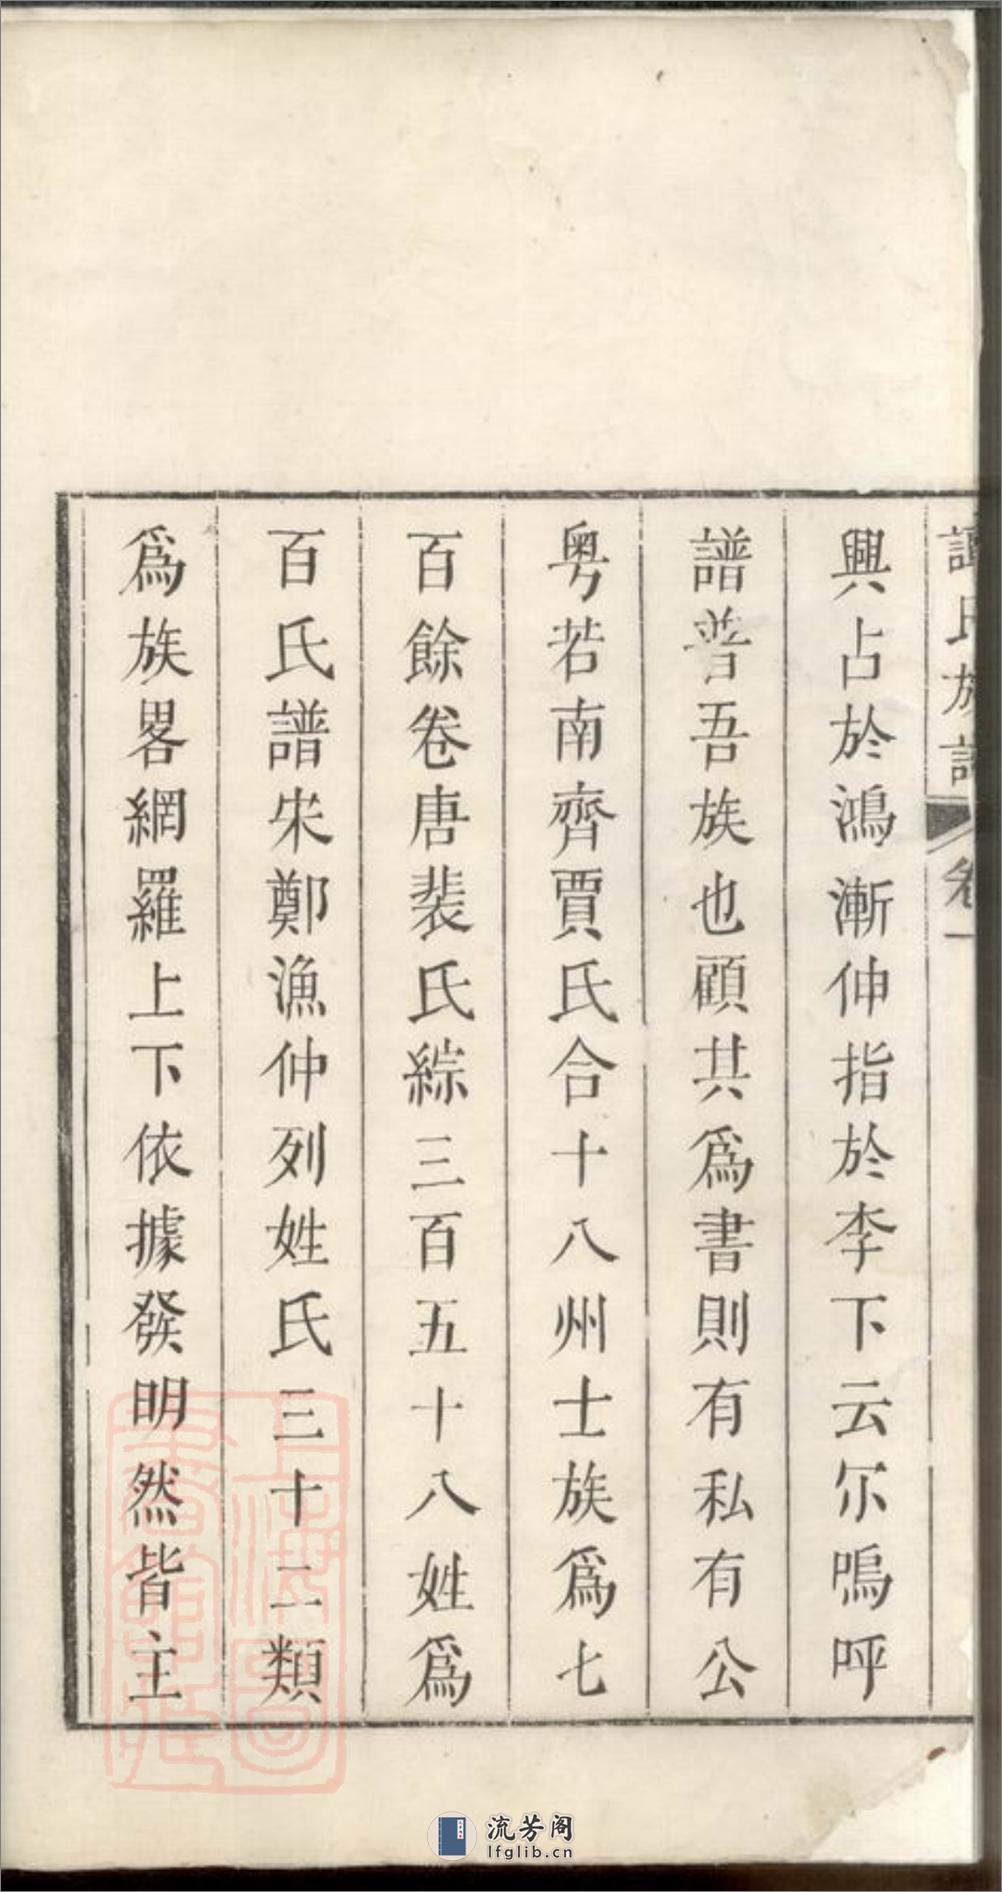 譚氏族譜 卷一
興占於鴻漸伸指於李下云尓嗚呼
譜普吾族也顧其爲書則有私有公
粵若南齊賈氏合十八州士族爲七
百餘卷唐裴氏綜三百五十八姓爲
百氏譜宋鄭漁仲列姓氏三十二類
爲族畧網羅上下依據發明然皆主
上海圖書館藏
流芳阁
lfglib.cn